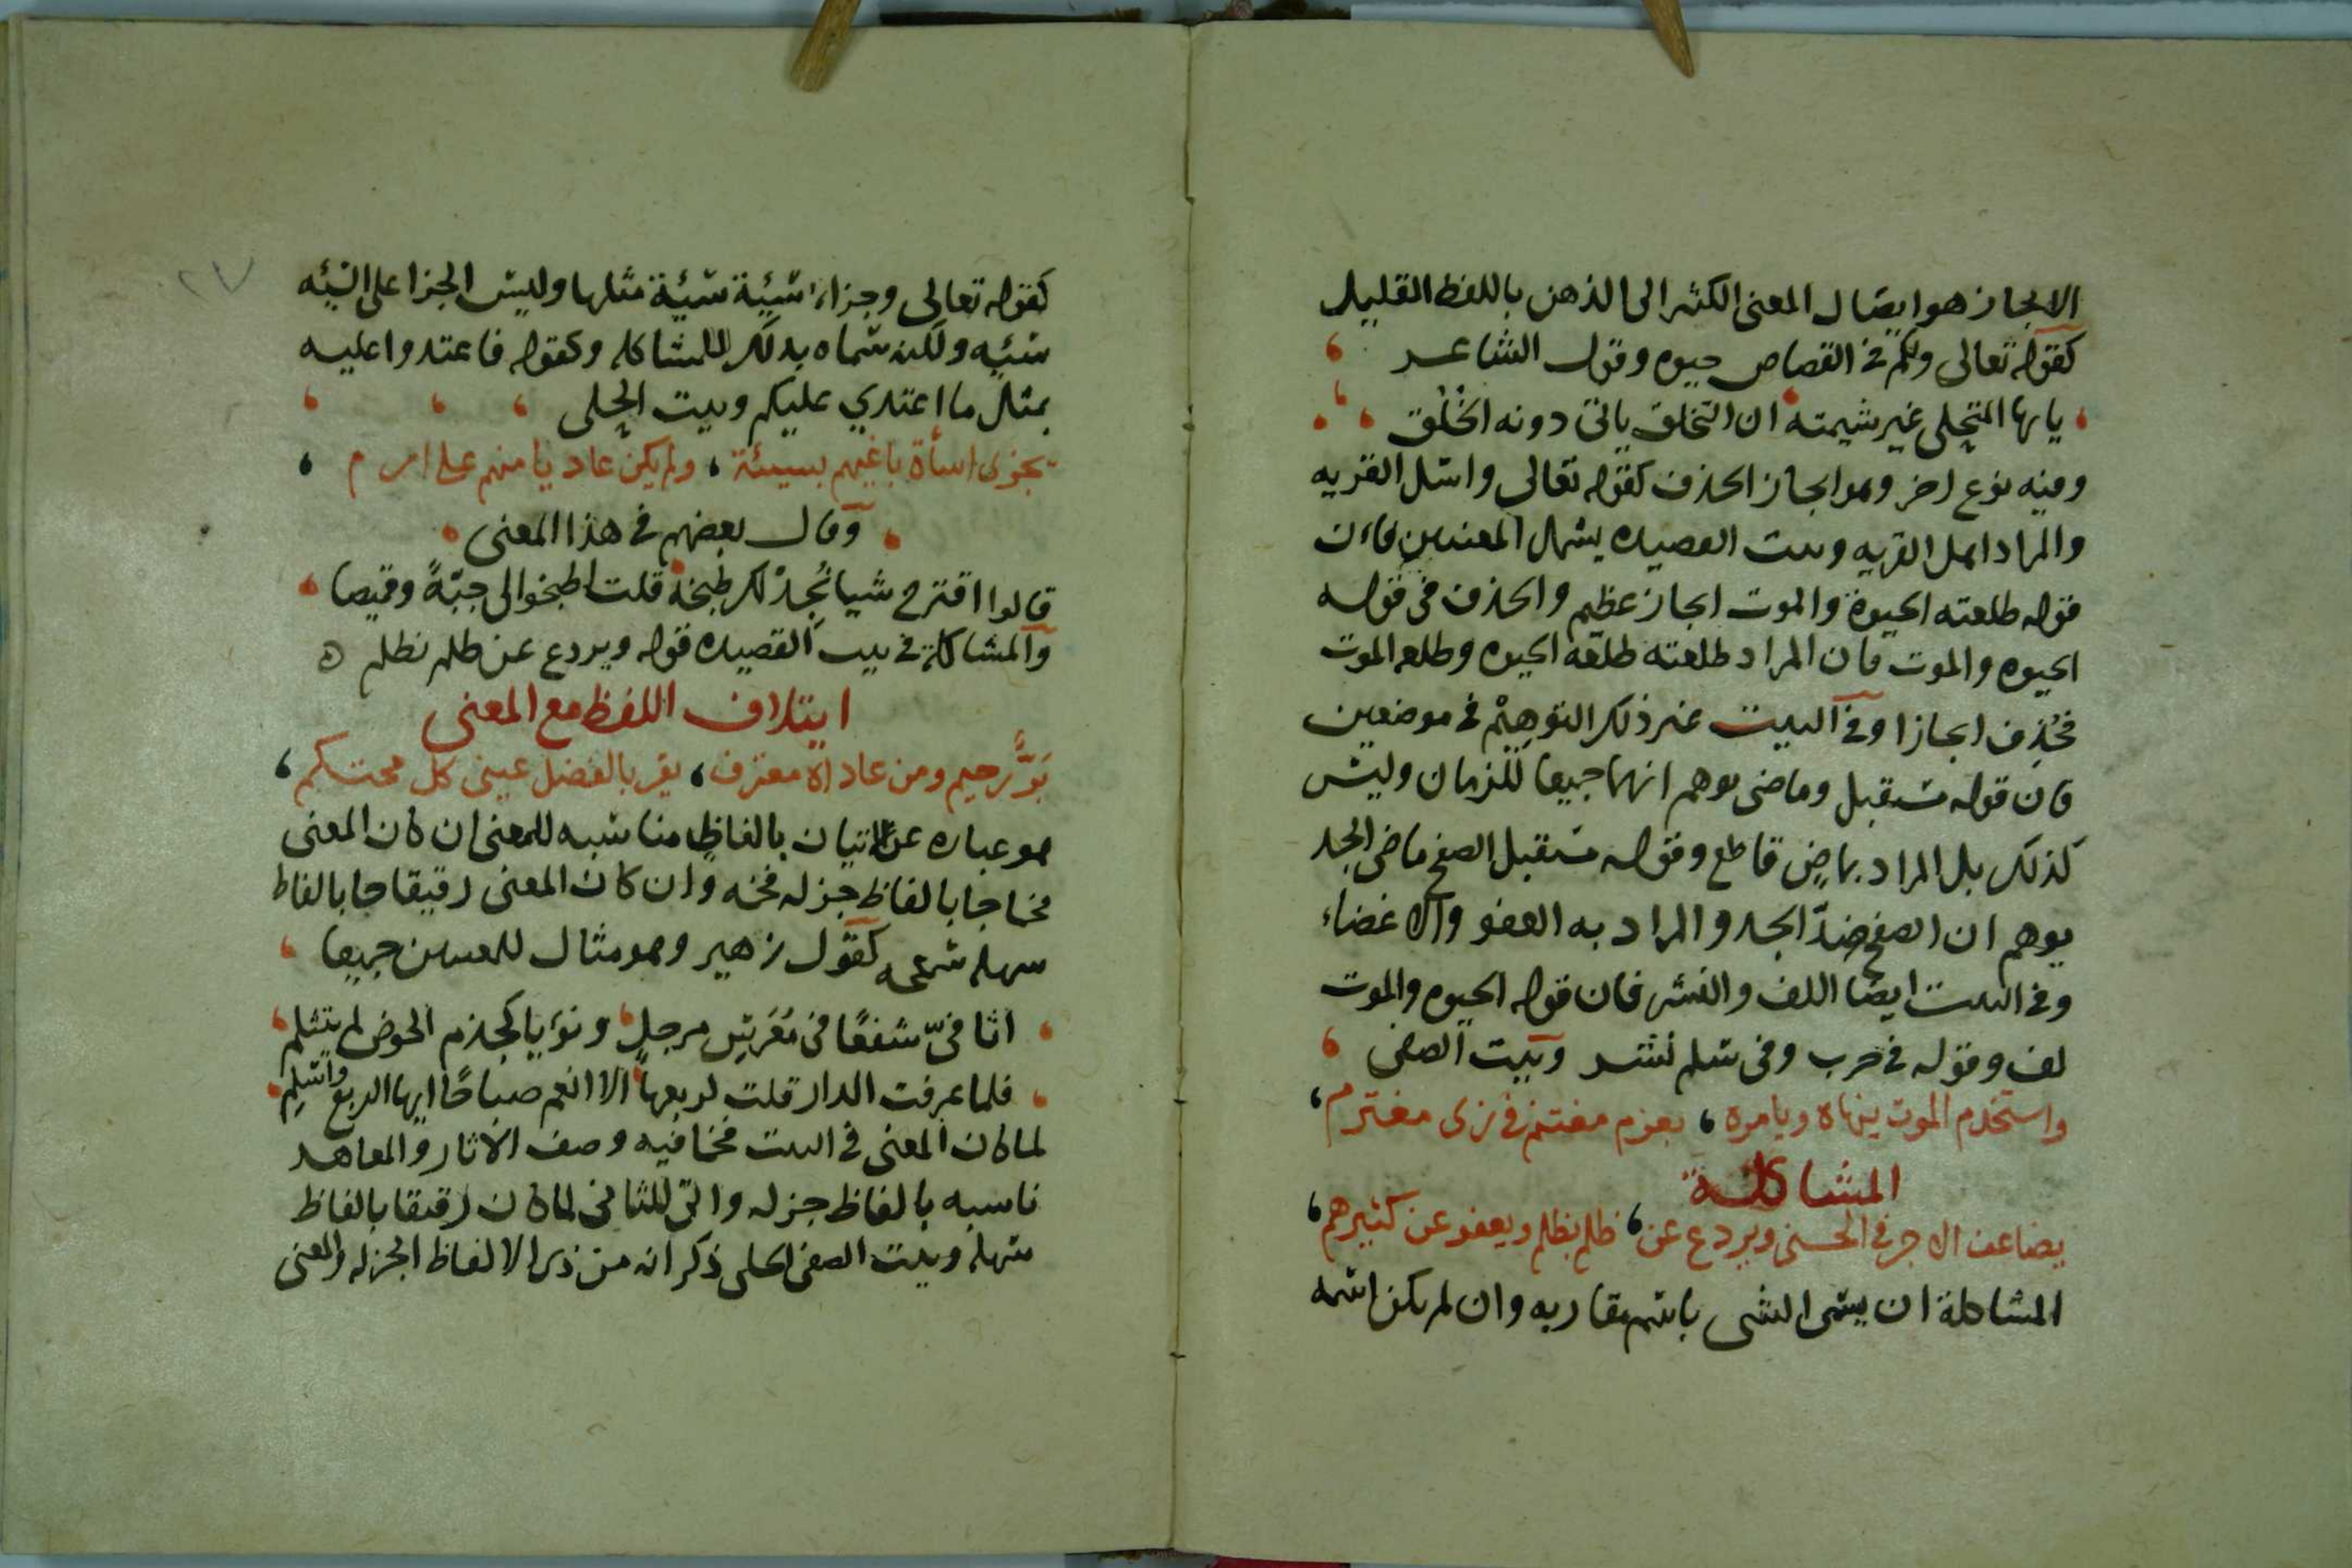 الايجاز هو ايصال المعنى الكثير الى الذهن باللفظ القليل
كقوله تعالى ولكم في القصاص حيوه وقول الشاعر
يايها المتحلى غير شيمته ان التخلق ياتى دونه الخُلُق
ومنه نوع اخر وهو ايجاز الحذف كقوله تعالى واسل القريه
والمراد اهل القريه وبيت القصيده يشمل المعنيين فان
قوله طلعته الحيوة والموت ايجاز عظيم والحذف في قوله
الحيوه والموت فان المراد طلعته طلعة الحيوه وطلعه الموت
فحُذِف ايجازا وفي البيت غير ذلك التوهيم في موضعين
فان قوله مستقبل وماضى يوهم انهما جميعا للزمان وليس
كذلك بل المراد بماضٍ قاطع وقوله مستقبل الصفح ماضى الحد
يوهم ان الصفح ضدّ الحد والمراد به العفو والاغضاء
وفي البيت ايضا اللف والنشر فان قوله الحيوه والموت
لف وقوله في حرب وفي سلم نشر وبيت الصفى
واستخدم الموت ينهاه ويامره ، بعزم مغتنم في زى مغترم
المشاكلة
يضاعف الاجر في الحسنى ويردع عن ، ظلم بظلم ويعفو عن كثيرهم
المشاكلة ان يسمى الشى باسم مقاربه وان لم يكن اسمه
كقوله تعالى وجزاء سيئة سيئة مثلها وليس الجزا على السيئه
سيئه ولكنه سماه بذلك للمشاكله وكقوله فاعتدوا عليه
بمثل ما اعتدي عليكم وبيت الحلى
يجزى اساة باغيهم بسيئة ، ولم يكن عاديا منهم على ارم
وقال بعضهم في هذا المعنى
قالوا اقترح شيا نُجِدْ لك طبخه قلت اطبخوا لى جبّةً وقميصا
والمشاكلة في بيت القصيده قوله ويردع عن ظلم بظلم
ايتلاف اللفظ مع المعنى
بَرٌّ رحيم ومن عاداه معترف ، يقر بالفضل عيى كل محتكم
هو عباره عن الاتيان بالفاظٍ مناسبه للمعنى ان كان المعنى
فخما جا بالفاظ جزله فخمه وان كان المعنى رقيقا جا بالفاظ
سهله كقول زهير وهو مثال للمعنيين جميعا
اثافىّ سفعًا في مُعَرَّسِ مرجلٍ ونؤيا كجذم الحوض لم يتثلم
فلما عرفت الدار قلت لربعها الا انعم صباحًا ايها الربع واسلم
لما كان المعنى في البيت فخما فيه وصف الاثار والمعاهد
ناسبه بالفاظ جزله واتى للثانى لما كان رقيقا بالفاظ
سهله وبيت الصفى الحلى ذكر انه من ذى الالفاظ الجزله والمعنى